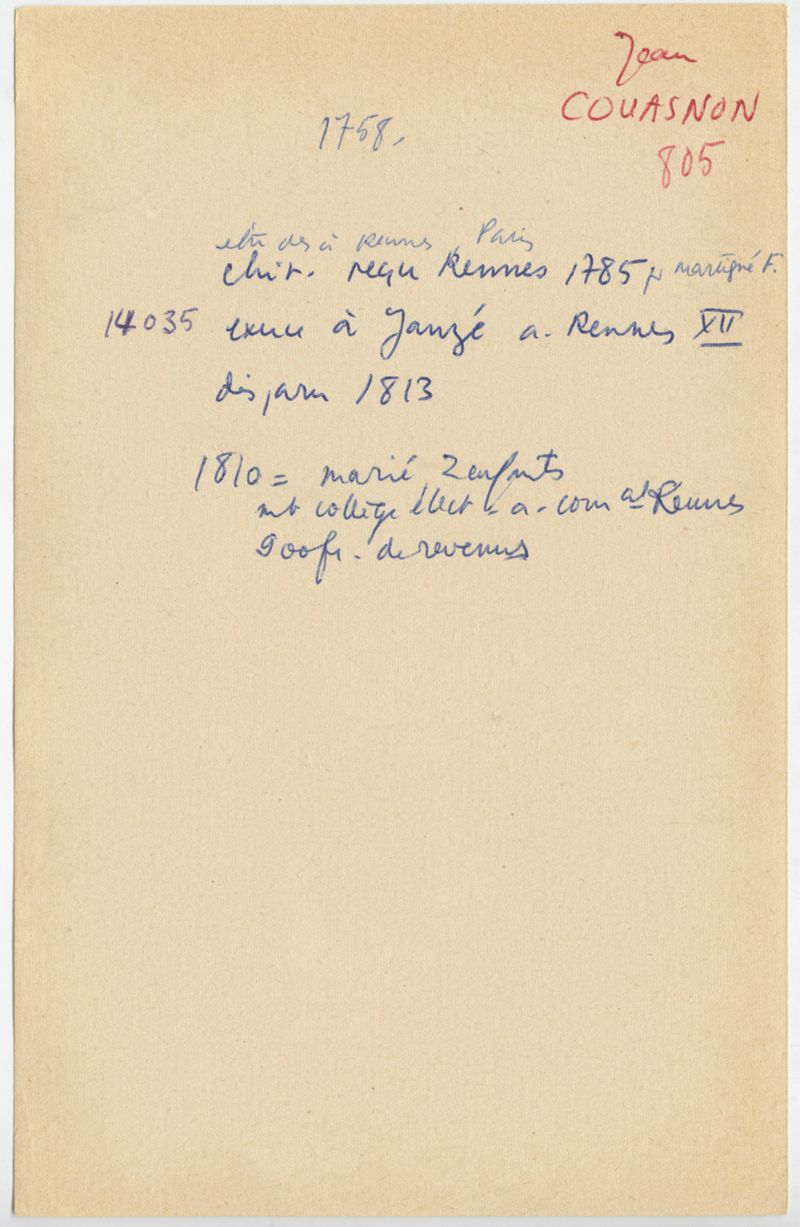 Jean
COUASNON
805
1758.
études à Rennes, Paris
chir. reçu Rennes 1785 pr Martigné F.
14035 exerce à Janzé a. Rennes XII
disparu 1813
1810 = marié, 2 enfants
mb collège élect - a - com al Rennes
900 fr. de revenus